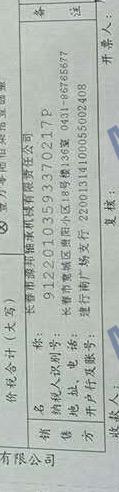 价税合计(大写)
销售方
名称: 长春市源邦轴承机械有限责任公司
纳税人识别号: 91220103593370217P
地址、电话: 长春市宽城区贵阳小区18号楼136室 0431-86765677
开户行及账号: 建行南广场支行 22001314100055002408
备注
收款人:
复核:
开票人:
有限公司